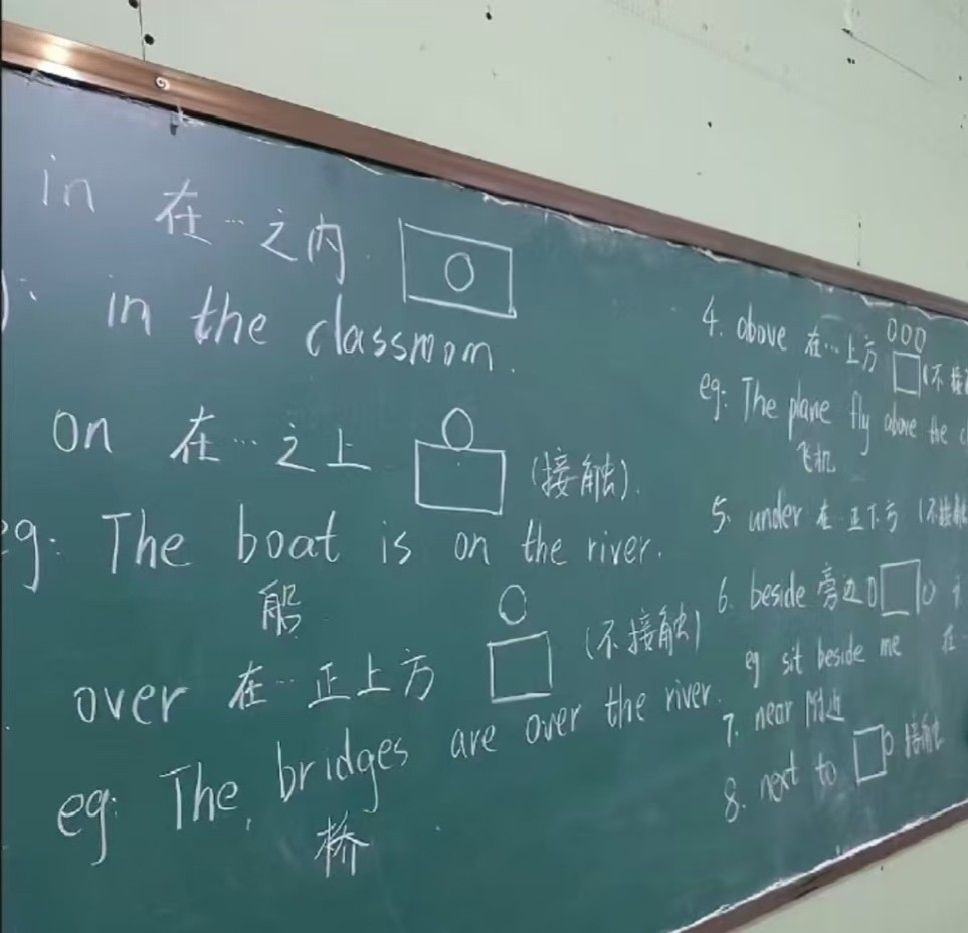 in 在…之内.
in the classroom.
on 在…之上 (接触).
eg: The boat is on the river.
船
over 在…正上方 (不接触)
eg: The bridges are over the river.
桥
4. above 在…上方 (不接
eg: The plane fly above the
飞机
5. under 在 正下方 (不接触
6. beside 旁边
eg sit beside me 在
7. near 附近
8. next to 接触